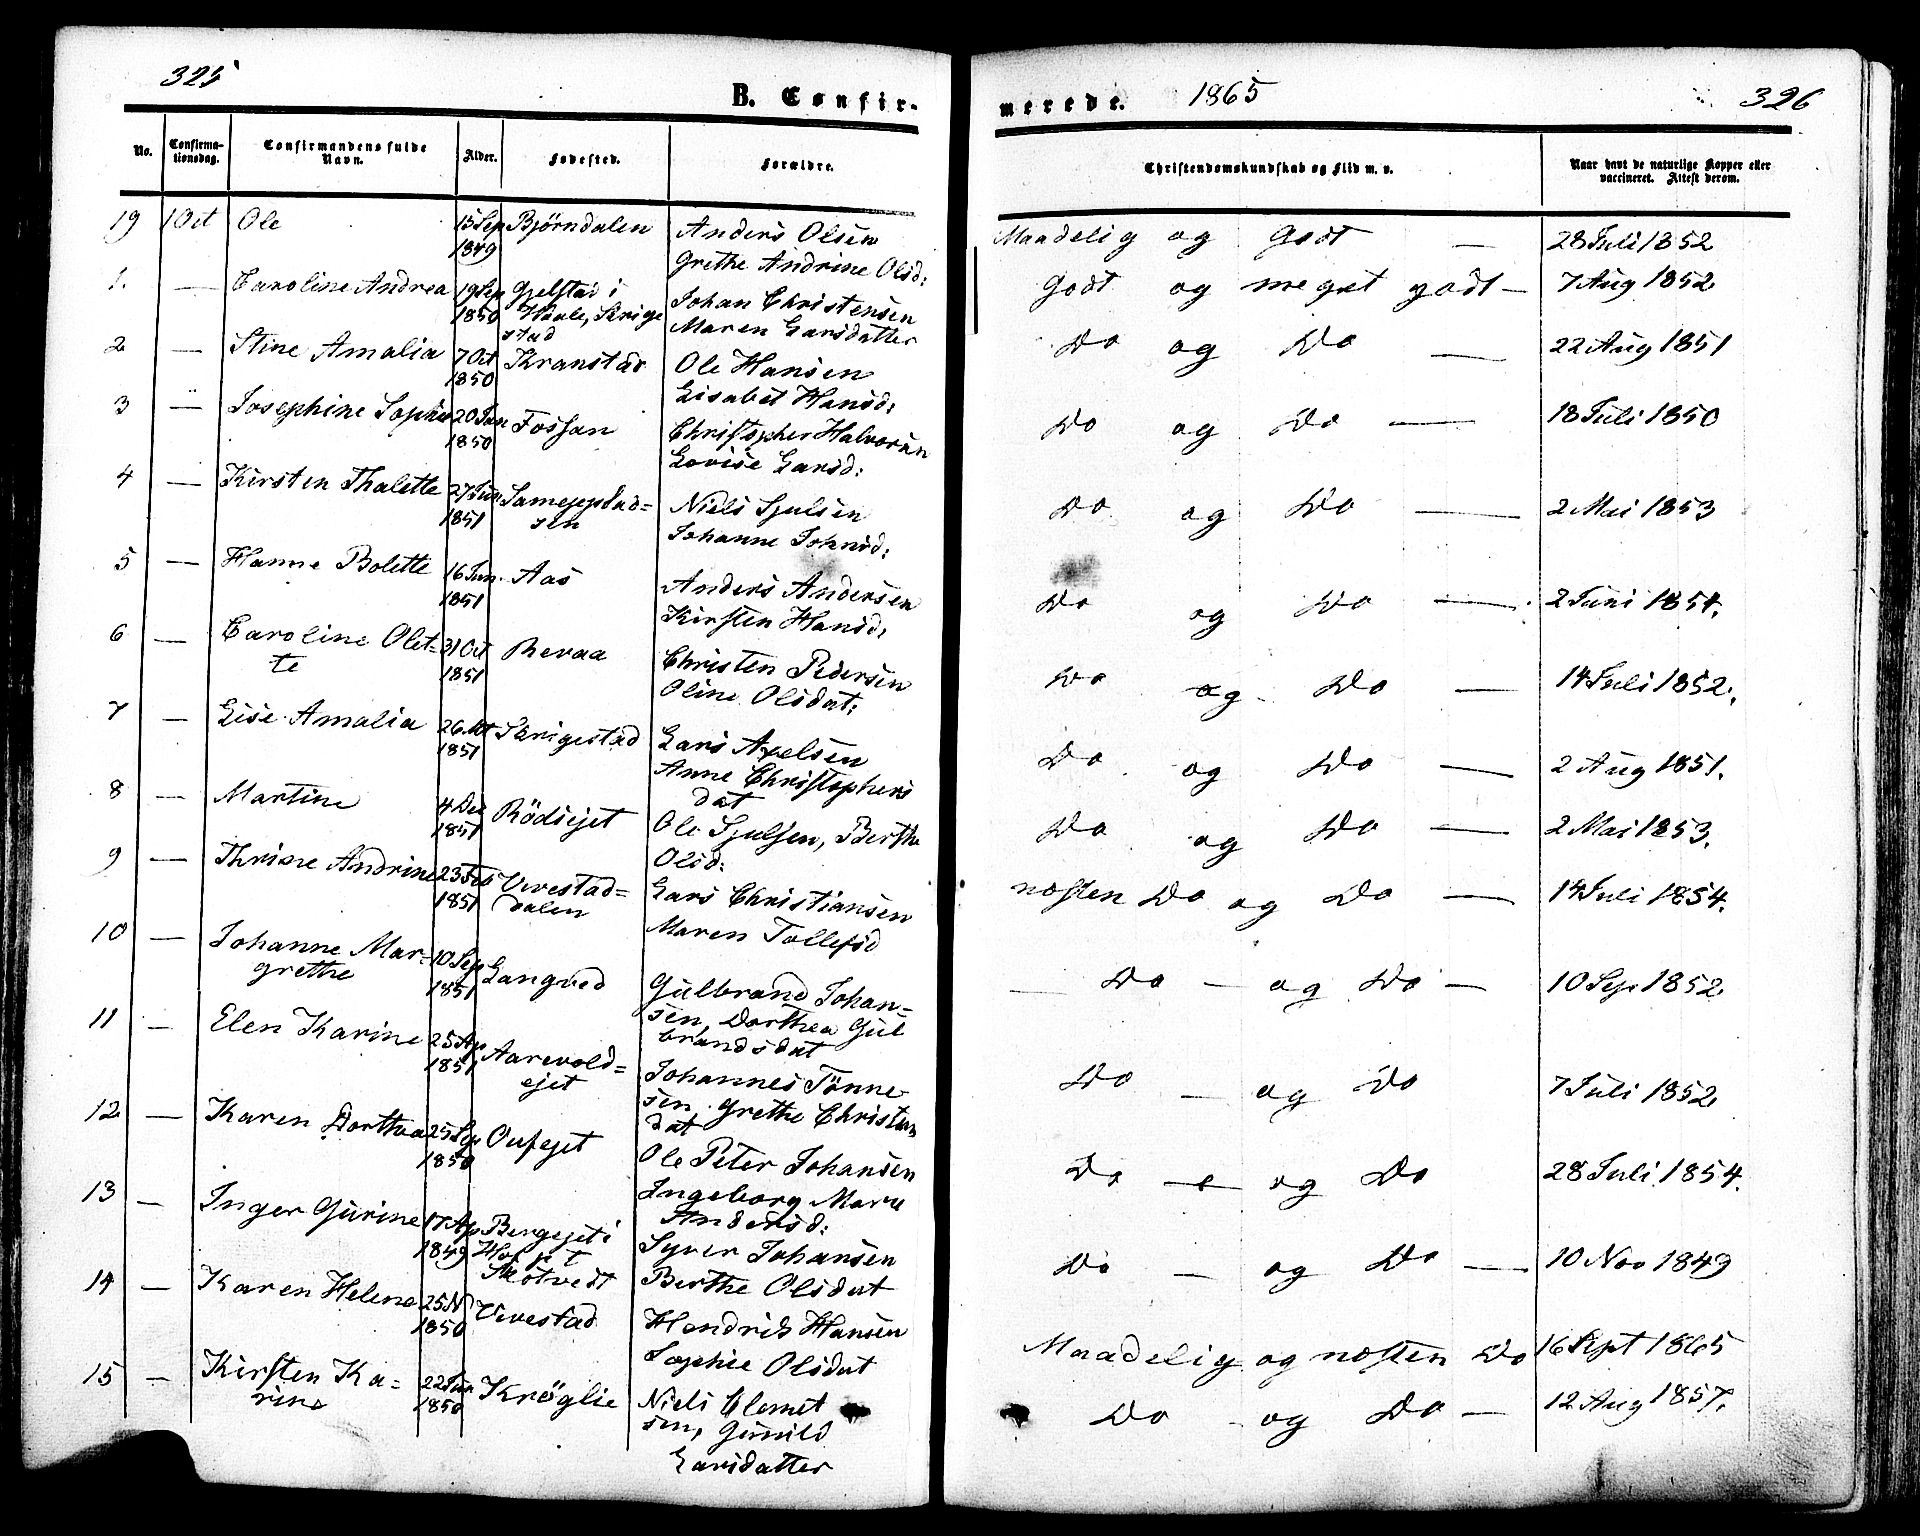 325
B. Confir-
No. Confirma-tionsdag. Confirmandens fulde Navn. Alder. Fødested. Forældre.
19 1 Oct Ole 15 Sep 1849 Bjørndalen Anders Olsen
Grethe Andrine Olsd:
1. — Caroline Andrea 19 Sep 1850 Gjelstad i
Johan Christensen
Maren Larsdatter
2 — Stine Amalia 7 Oct 1850 Kranstad Ole Hansen
Lisabet Hansd:
3 — Josephine Sophie 20 Jan 1850 Fossan Christopher Halvorsen
Lovise Larsd:
4 — Kirsten Thalette 27 Jun 1851 Niels Sjulsen
Johanne Johnsd:
5 — Hanne Bolette 16 Jun. 1851 Aas Anders Andersen
Kirsten Hansd:
6 — Caroline Olet-
te 31 Oct 1851 Revaa Christen Pedersen
Oline Olsdat:
7 — Lise Amalia 1851 Skrigestad Lars Axelsen
Anne Christophers
dat
8 — Martine 4 Dec 1851 Rödsejet Ole Sjulsen, Berthe
Olsd:
9 — Thrine Andrine 23 Feb 1851 Vivestad=
dalen Lars Christiansen
Maren Tollefsd
10 — Johanne Mar-
grethe 10 Sep 1851 Langved Gulbrand Johan-
sen, Dorthea Gul
brandsdat
11 — Elen Karine 25 Ap 1851 Aarevold=
ejet Johannes Tönne-
sen. Grethe Christen
dat
12 — Karen Dorthea 25 Sep 1850 Ole Peter Johansen
Ingeborg Marie
Andersd:
13 — Inger Gurine 17 Ap 1849 Bergejet i
Skotvedt Syver Johansen
Berthe Olsdat
14 — Karen Helene 25 N 1850 Vivestad Hendrik Hansen
Sophie Olsdat
15 — Kirsten Ka-
rine 22 Jun 1850 Kröglie Niels Clemet
sen, Gunild
Larsdatter
merede. 1865 326
Christendomskundskab og Flid m. v. Naar havt de naturlige Kopper eller vaccineret. Attest derom.
Maadelig og Godt — 28 Juli 1852
Godt og meget godt — 7 Aug 1852
Do og Do — 22 Aug 1851
Do og Do — 18 Juli 1850
Do og Do — 2 Mai 1853
Do og Do — 2 Juni 1854.
Do og Do — 14 Juli 1852.
Do og Do — 2 Aug 1851.
Do og Do — 2 Mai 1853.
næsten Do og Do — 14 Juli 1854.
— Do — og Do — 10 Sep 1852
Do — og Do 7 Juli 1852
Do — og Do 28 Juli 1854.
Do — og Do — 10 Nov 1849
Maadelig og næsten Do 16 Sept 1865
Do - og Do — 12 Aug 1857.